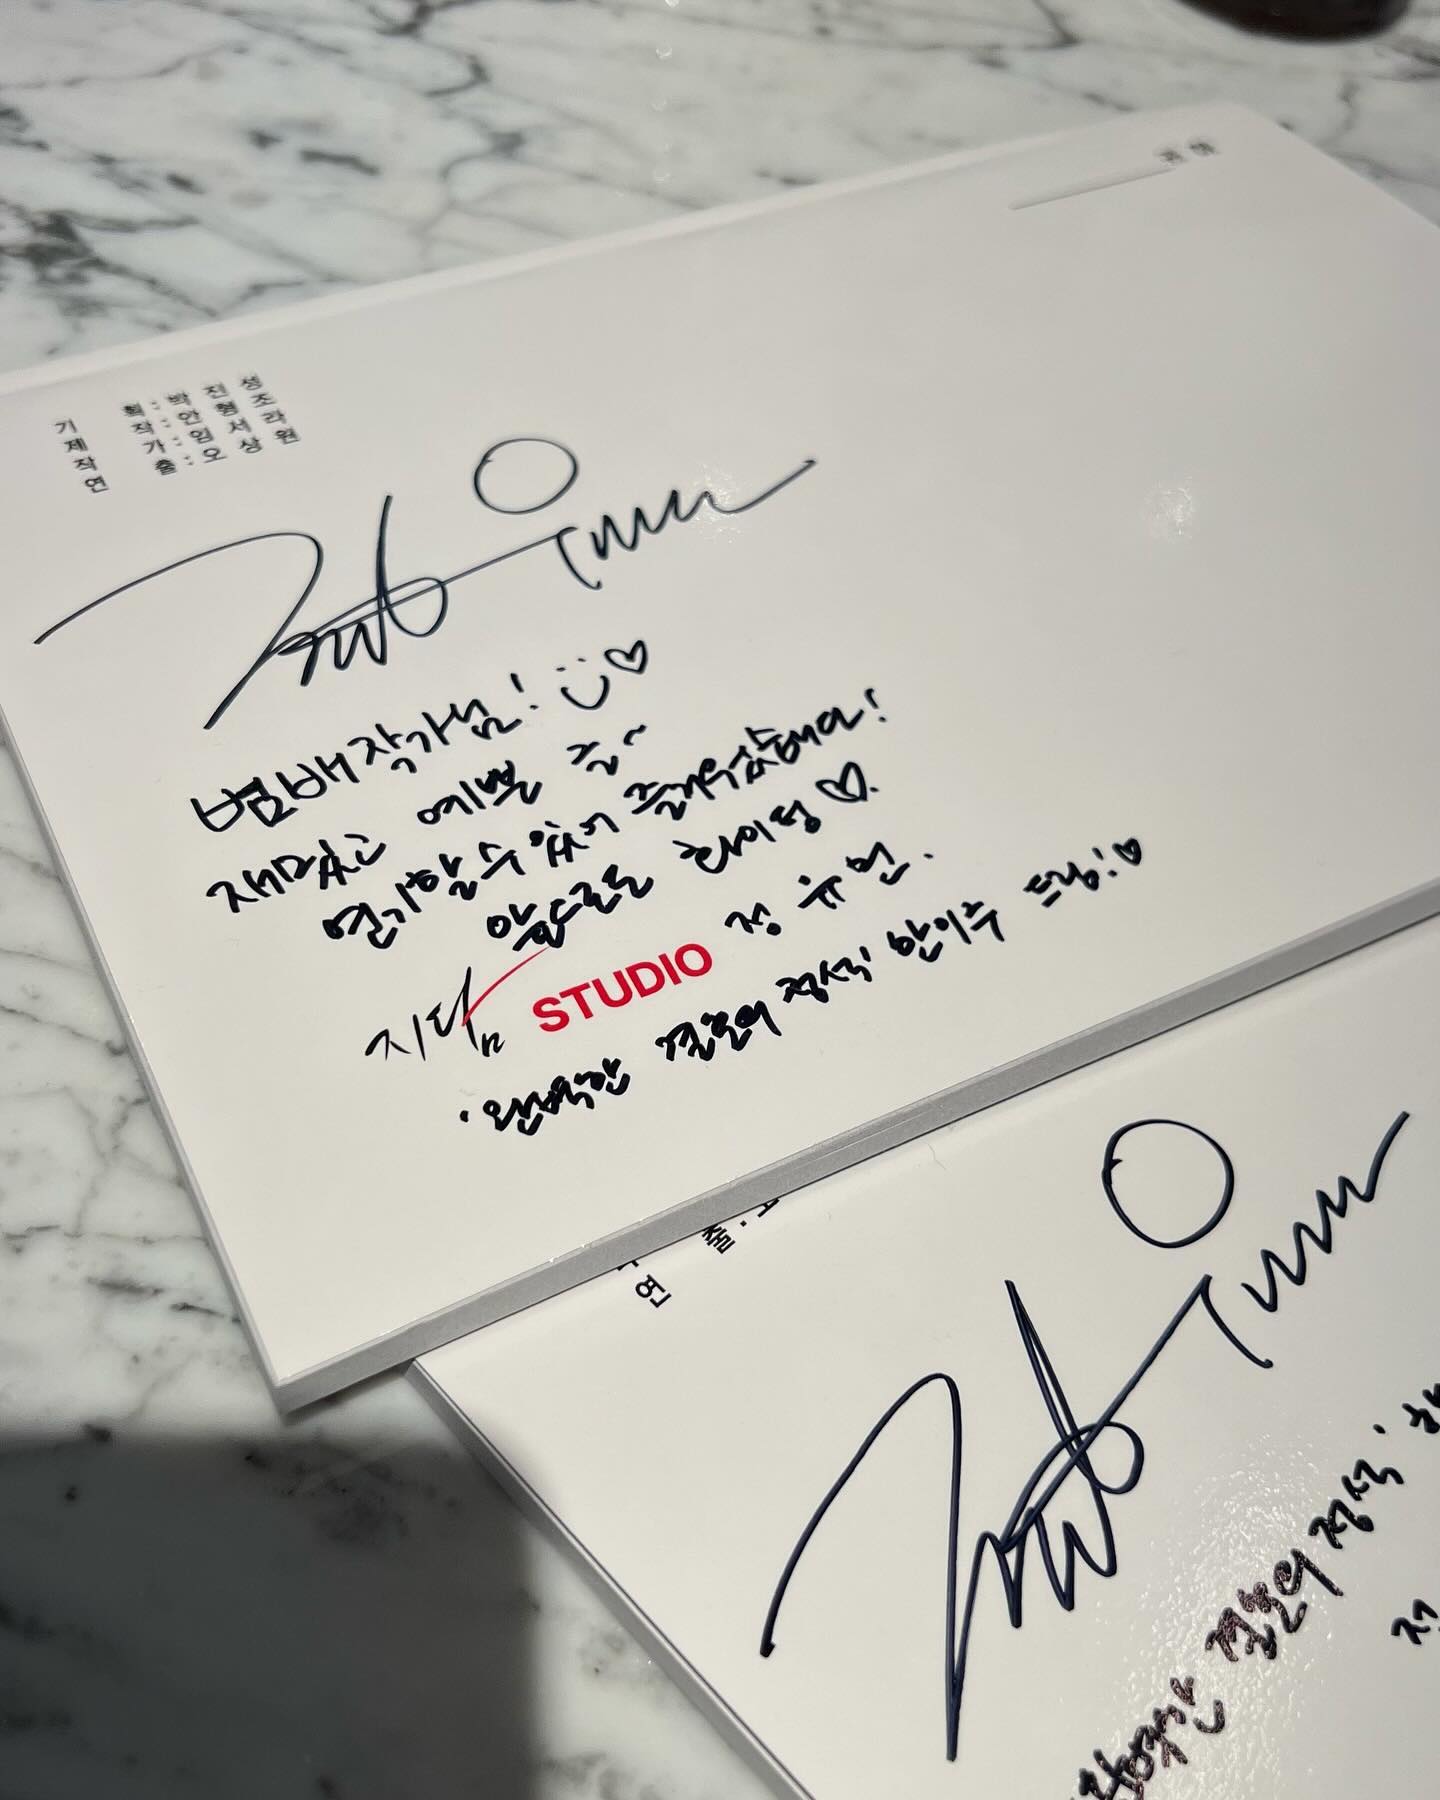 귀하
기 획 : 박 진 형
제 작 : 안 형 조
작 가 : 임 서 라
연 출 : 오 상 원
범배작가님!
재밌고 예쁜 글~
연기할 수 있어 즐거웠습니다!
앞으로도 화이팅♡.
지담 STUDIO 정유민.
'완벽한 결혼의 정석' 한이주 드림!♡
연 출 :
완벽한 결혼의 정석'